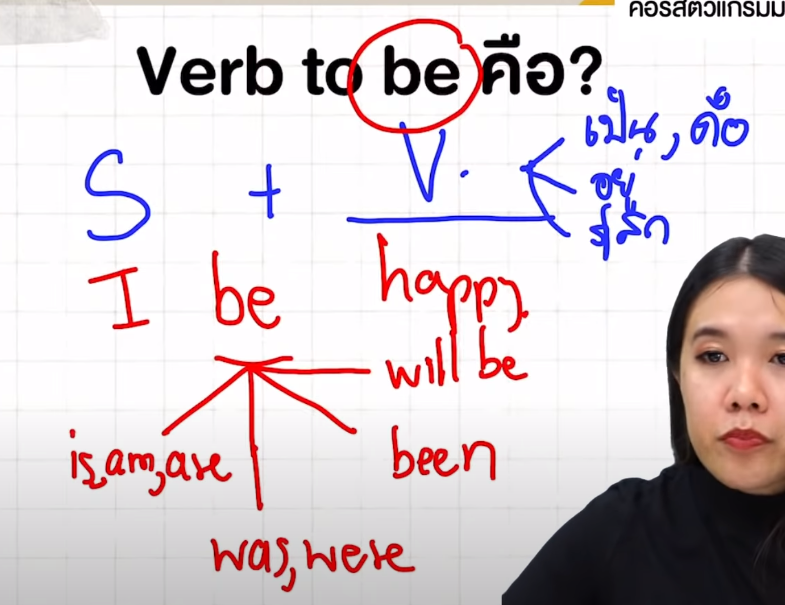 คอร์สติวแกรมม
Verb to be คือ?
S + V.
เป็น, คือ
อยู่
รู้สึก
I be happy.
will be
is, am, are
been
was, were